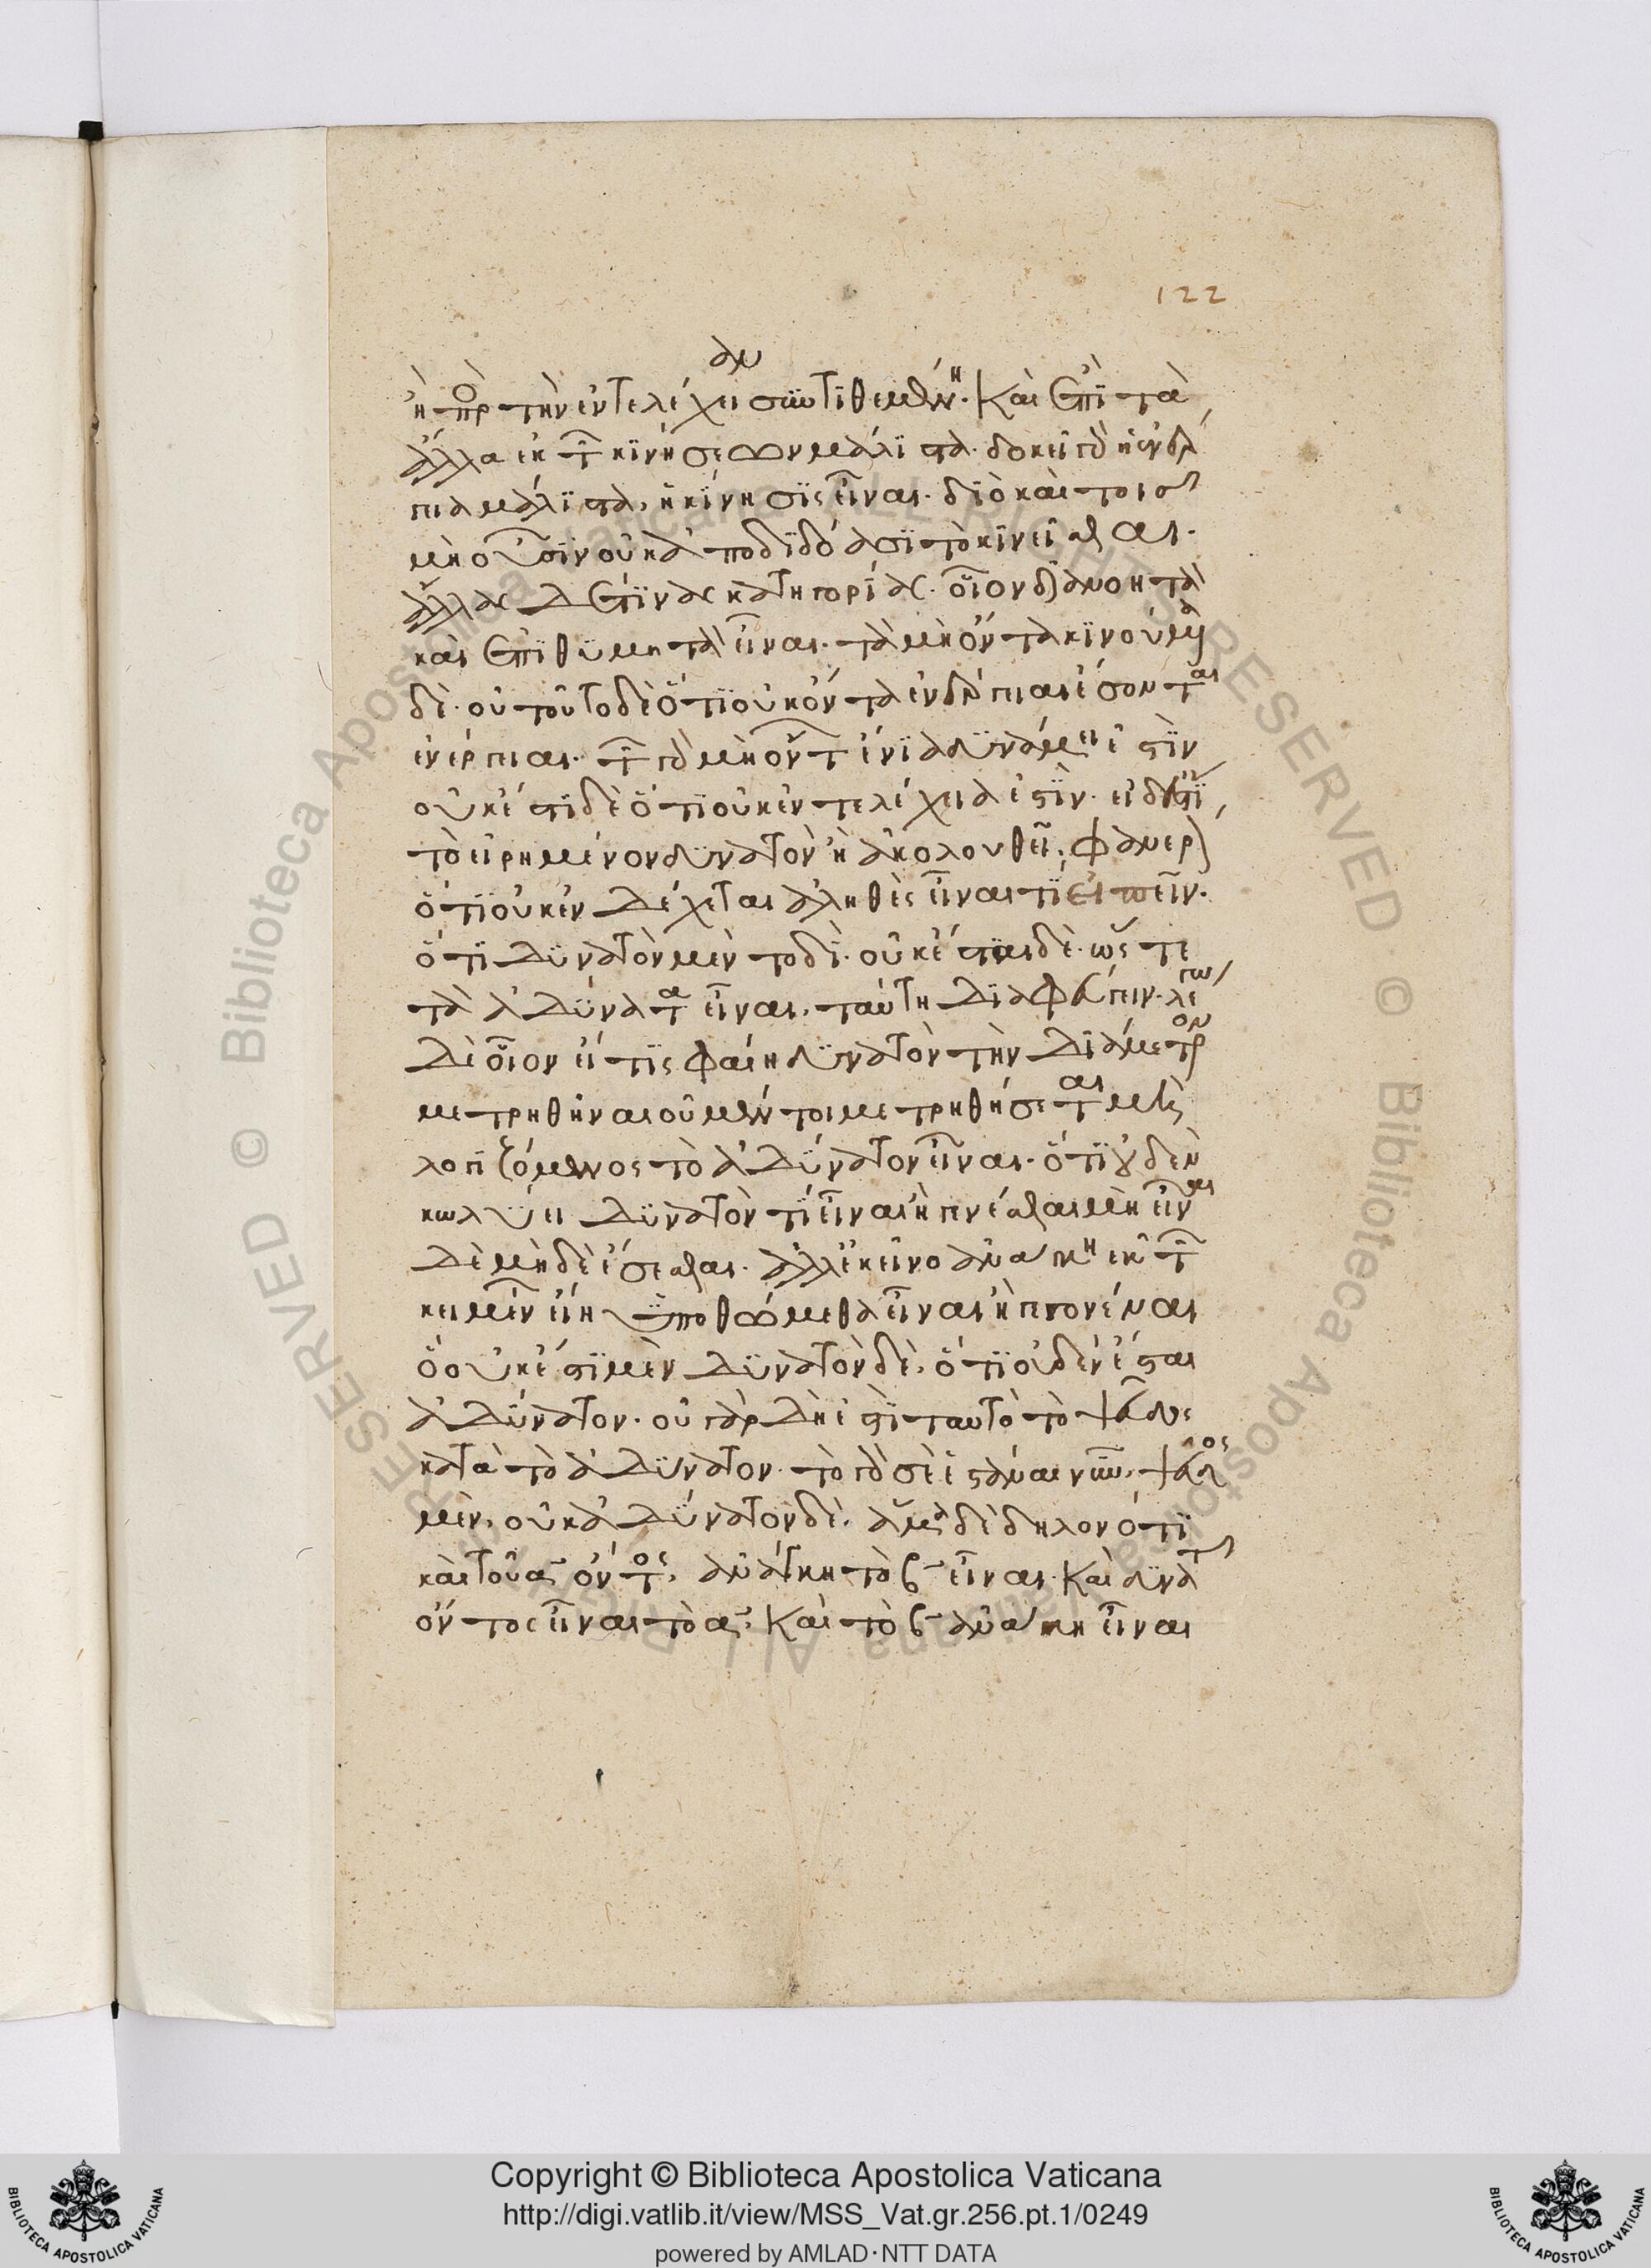 ἢ πρὸς τὴν ἐντελέχειαν συντιθεμένη. Καὶ ἐπὶ τὰ
ἄλλα ἐκ τῶν κινήσεων μάλιστα. δοκεῖ γὰρ ἡ ἐνέρ
γεια μάλιστα, ἡ κίνησις εἶναι. διὸ καὶ τοῖς
μὴ οὖσιν οὐκ ἀποδιδόασι τὸ κινεῖσθαι.
ἄλλας δέ τινας κατηγορίας. οἷον διανοητὰ
καὶ ἐπιθυμητὰ εἶναι. τὰ μὴ ὄντα κινούμενα
δὲ οὐ. τοῦτο δὲ ὅτι οὐκ ὄντα ἐνεργείαι ἔσονται
ἐνεργείαι. τῶν γὰρ μὴ ὄντων ἔνια δυνάμει ἐστὶν
οὐκ ἔστι δὲ ὅτι οὐκ ἐντελέχεια ἐστίν. εἰ δ' ἐστὶ
τὸ εἰρημένον δυνατὸν ἢ ἀκολουθεῖ, φανερὸν
ὅτι οὐκ ἐνδέχεται ἀληθὲς εἶναι τι εἰπεῖν.
ὅτι δυνατὸν μὲν τοδί. οὐκ ἔσται δέ. ὥστε
τὰ ἀδύνατα εἶναι, ταύτη διαφεύγειν. λέγω
δὲ οἷον εἴ τις φαίη δυνατὸν τὴν διάμετρον
μετρηθῆναι οὐ μέντοι μετρηθήσεται μὴ
λογιζόμενος τὸ ἀδύνατον εἶναι. ὅτι οὐδὲν
κωλύει δυνατὸν τι εἶναι ἢ γενέσθαι μὴ εἶναι
δὲ μὴδὲ ἔσεσθαι. ἀλλ' ἐκεῖνο ἀνάγκη ἐκ τῶν
κειμένων εἰ ὑποθώμεθα εἶναι ἢ γεγονέναι
ὃ οὐκ ἔστι μὲν δυνατὸν δὲ, ὅτι οὐδὲν ἔσται
ἀδύνατον. οὐ γὰρ δὴ ἐστὶ ταυτὸ τὸ ψεῦδος
κατὰ τὸ ἀδύνατον. τὸ γὰρ σὲ ἑστάναι νῦν, ψεῦδος
μὲν, οὐκ ἀδύνατον δέ. ἅμα δὲ δῆλον ὅτι
καὶ τοῦ α ὄντος, ἀνάγκη τὸ β εἶναι. Καὶ δυνατοῦ
ὄντος εἶναι τὸ α, Καὶ τὸ β ἀνάγκη εἶναι
122
Copyright © Biblioteca Apostolica Vaticana
http://digi.vatlib.it/view/MSS_Vat.gr.256.pt.1/0249
powered by AMLAD·NTT DATA